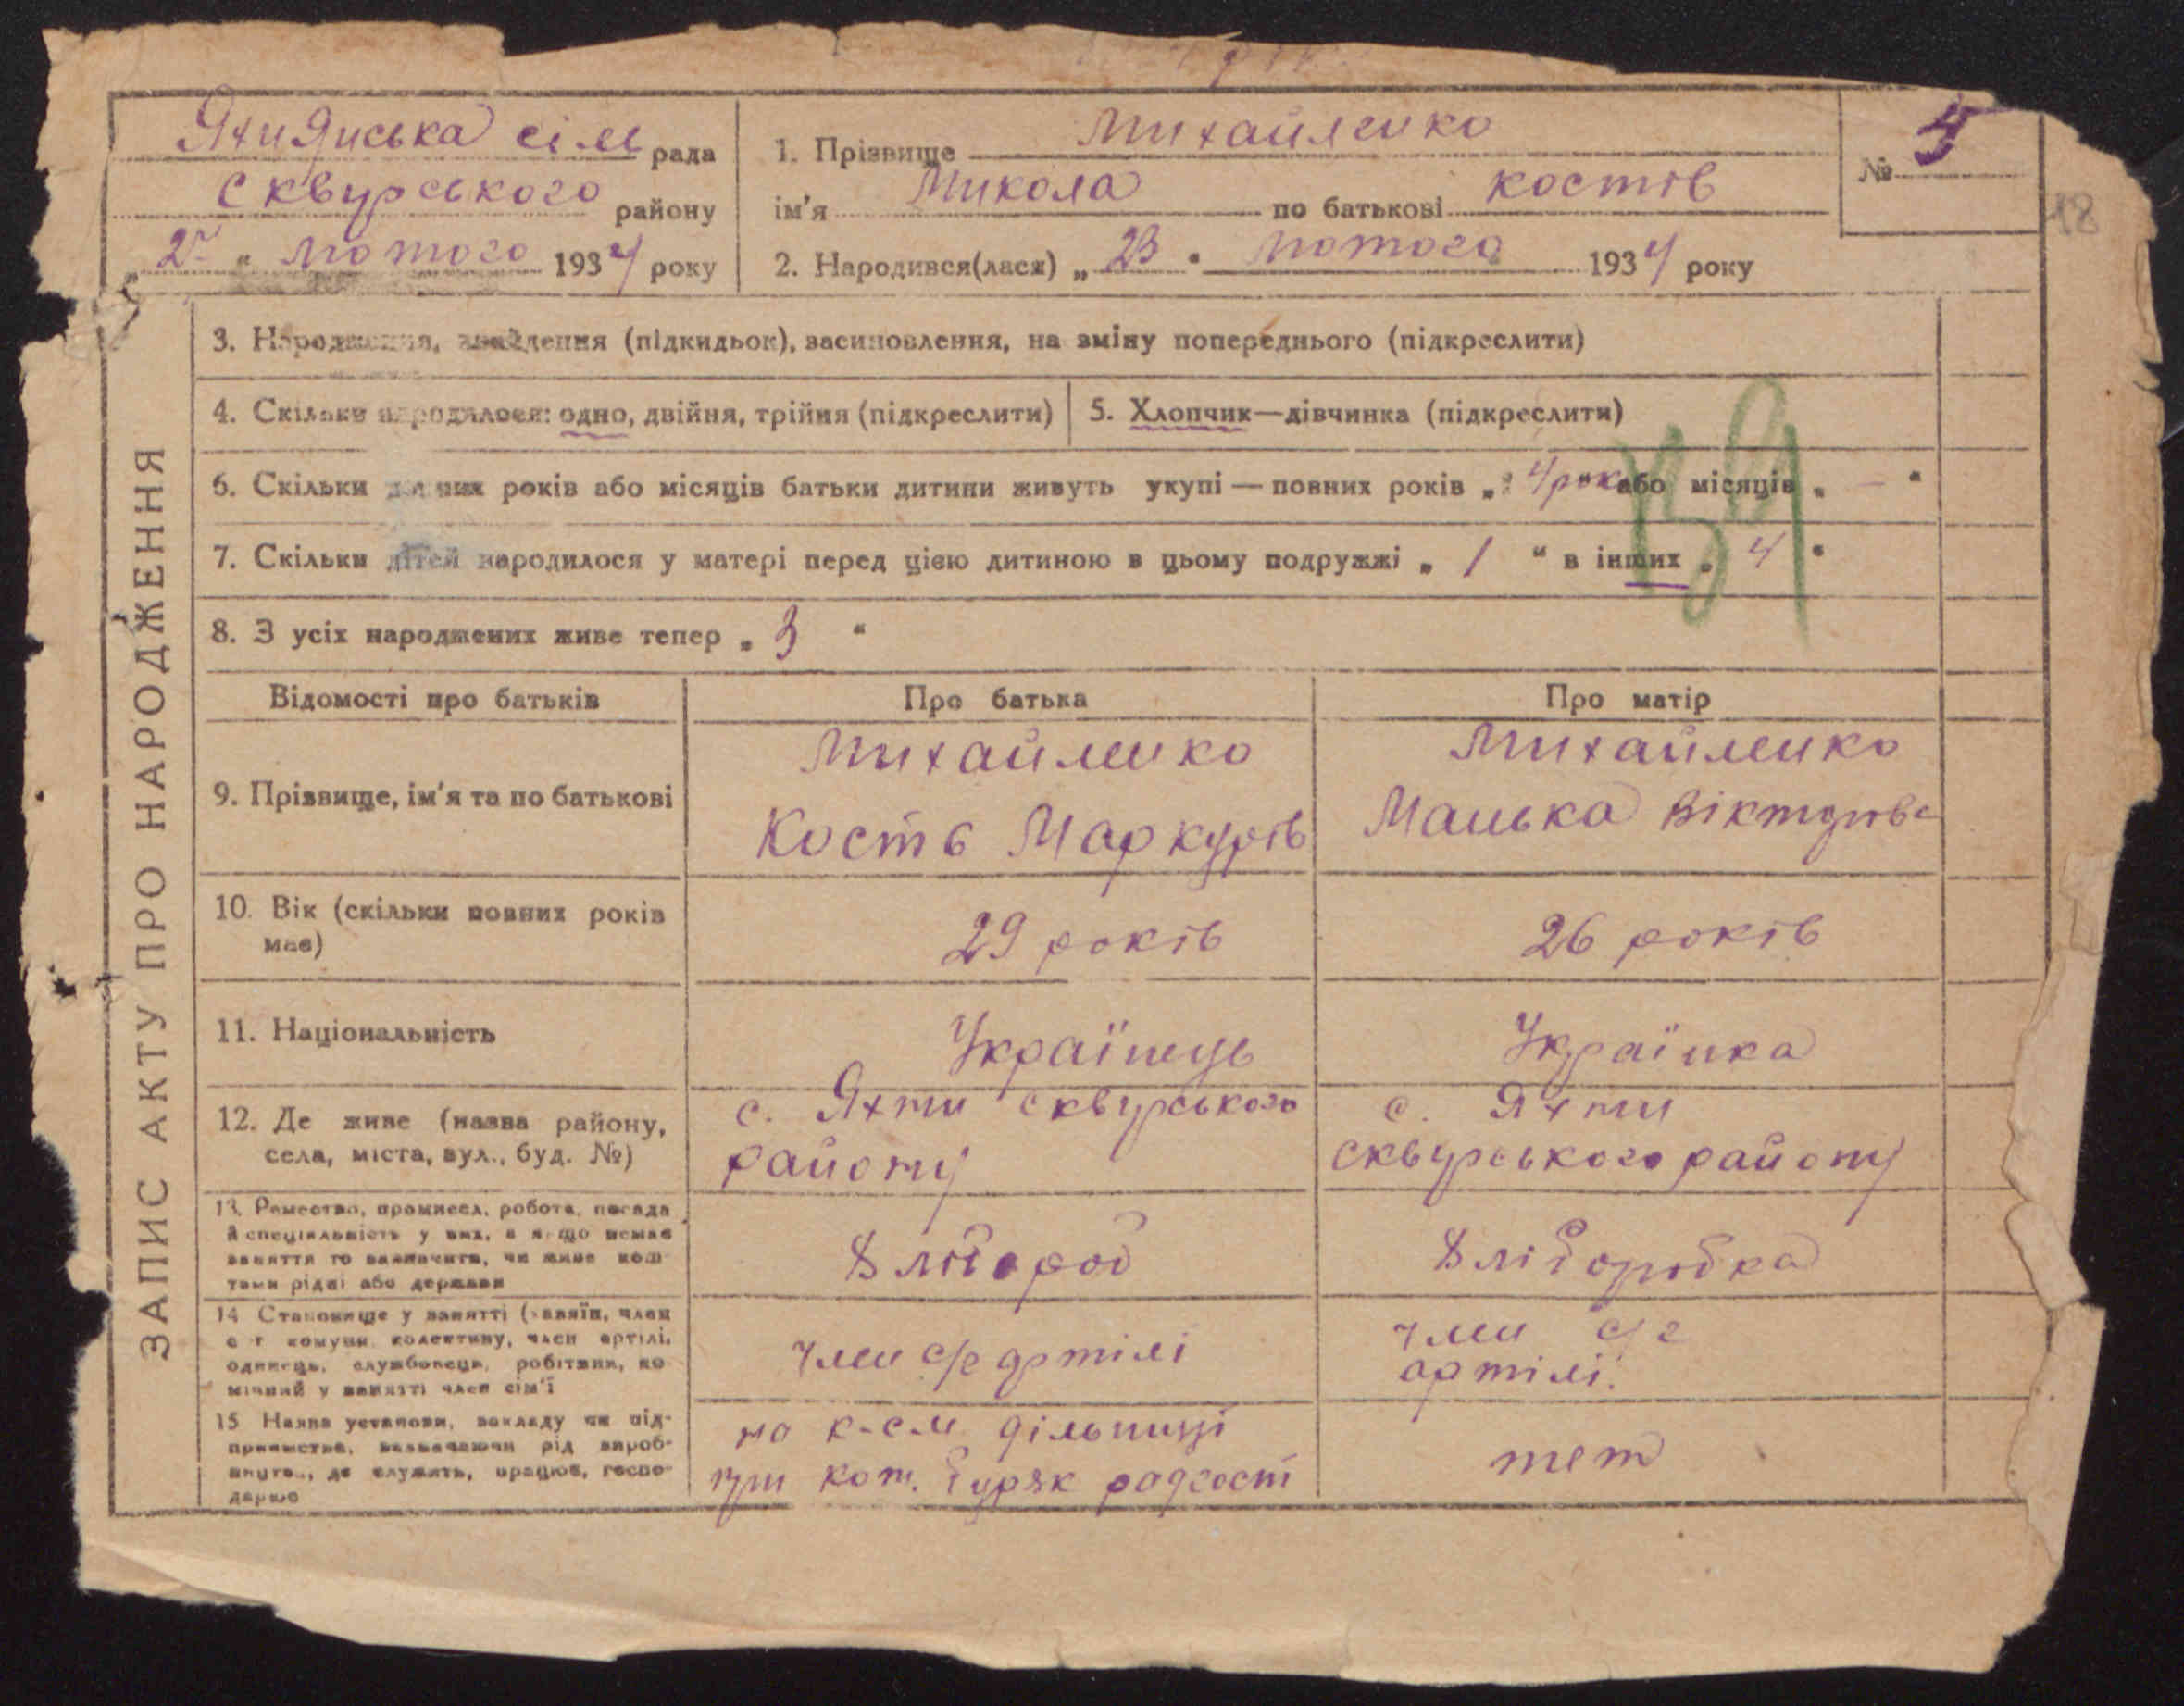 Яхнянська сіль рада
Сквирського району
„ " лютого 1934 року
1. Прізвище Михайленко
ім'я Микола по батькові костів
2. Народився(лася) „ 23 " лютого 1934 року
№ 5
18
ЗАПИС АКТУ ПРО НАРОДЖЕННЯ
3. Народження, знайдення (підкидьок), засиновлення, на зміну попереднього (підкреслити)
4. Скільки народилося: одно, двійня, трійня (підкреслити)
5. Хлопчик—дівчинка (підкреслити)
6. Скільки повних років або місяців батьки дитини живуть укупі — повних років „ 4 рок або місяців „ — "
7. Скільки дітей народилося у матері перед цією дитиною в цьому подружжі „ 1 " в інших „ 4 "
8. З усіх народжених живе тепер „ 3 "
Відомості про батьків
Про батька
Про матір
9. Прізвище, ім'я та по батькові
Михайленко
Кость Маркурів
Михайленко
Манька Вікторівн
10. Вік (скільки повних років
має)
29 років
26 років
11. Національність
Українець
Українка
12. Де живе (назва району,
села, міста, вул., буд. №)
с. Яхни Сквурського
району
с. Яхни
сквурського району
13. Ремество, промисел, робота, посада
й спеціяльність у них, а якщо немає
заняття то зазначити, чи живе кош-
тами рідні або держави
Хлібороб
Хліборобка
14 Становище у занятті (хазяїн, член
с г комуни колективу, член артілі,
одинець, службовець, робітник, по
мічний у занятті член сім'ї
член с/г артілі
член с/г
артілі.
15 Назва установи, закладу чи під-
приємства, визначаючи рід вироб-
ництва, де служить, працює, госпо-
дарює
на к-см дільниці
при ком. буряк радгосп
теж